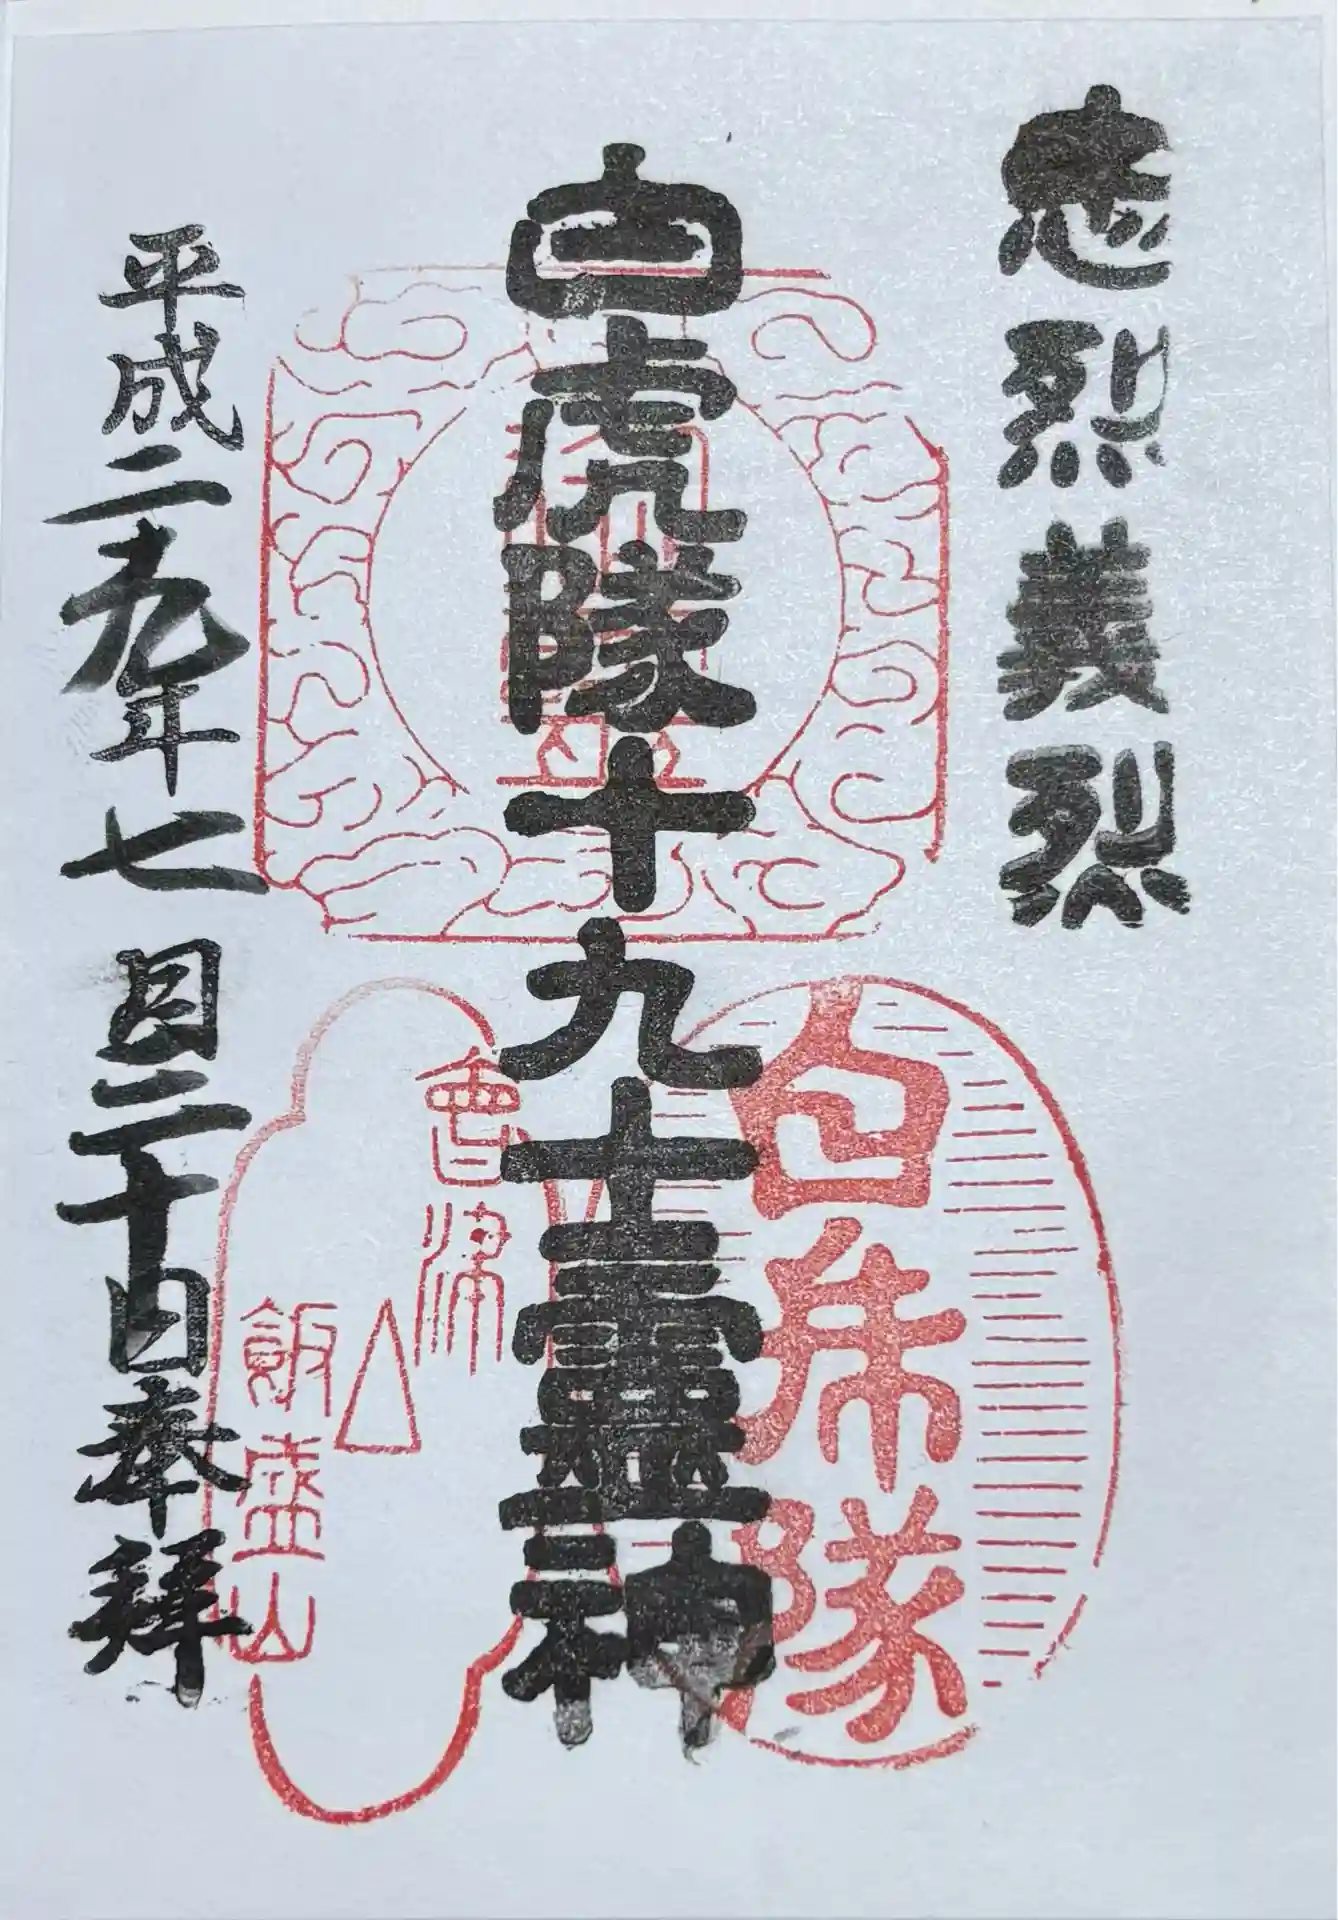 忠烈義烈
白虎隊十九士靈神
白虎隊
會津
飯盛山
平成二九年七月二十日奉拜